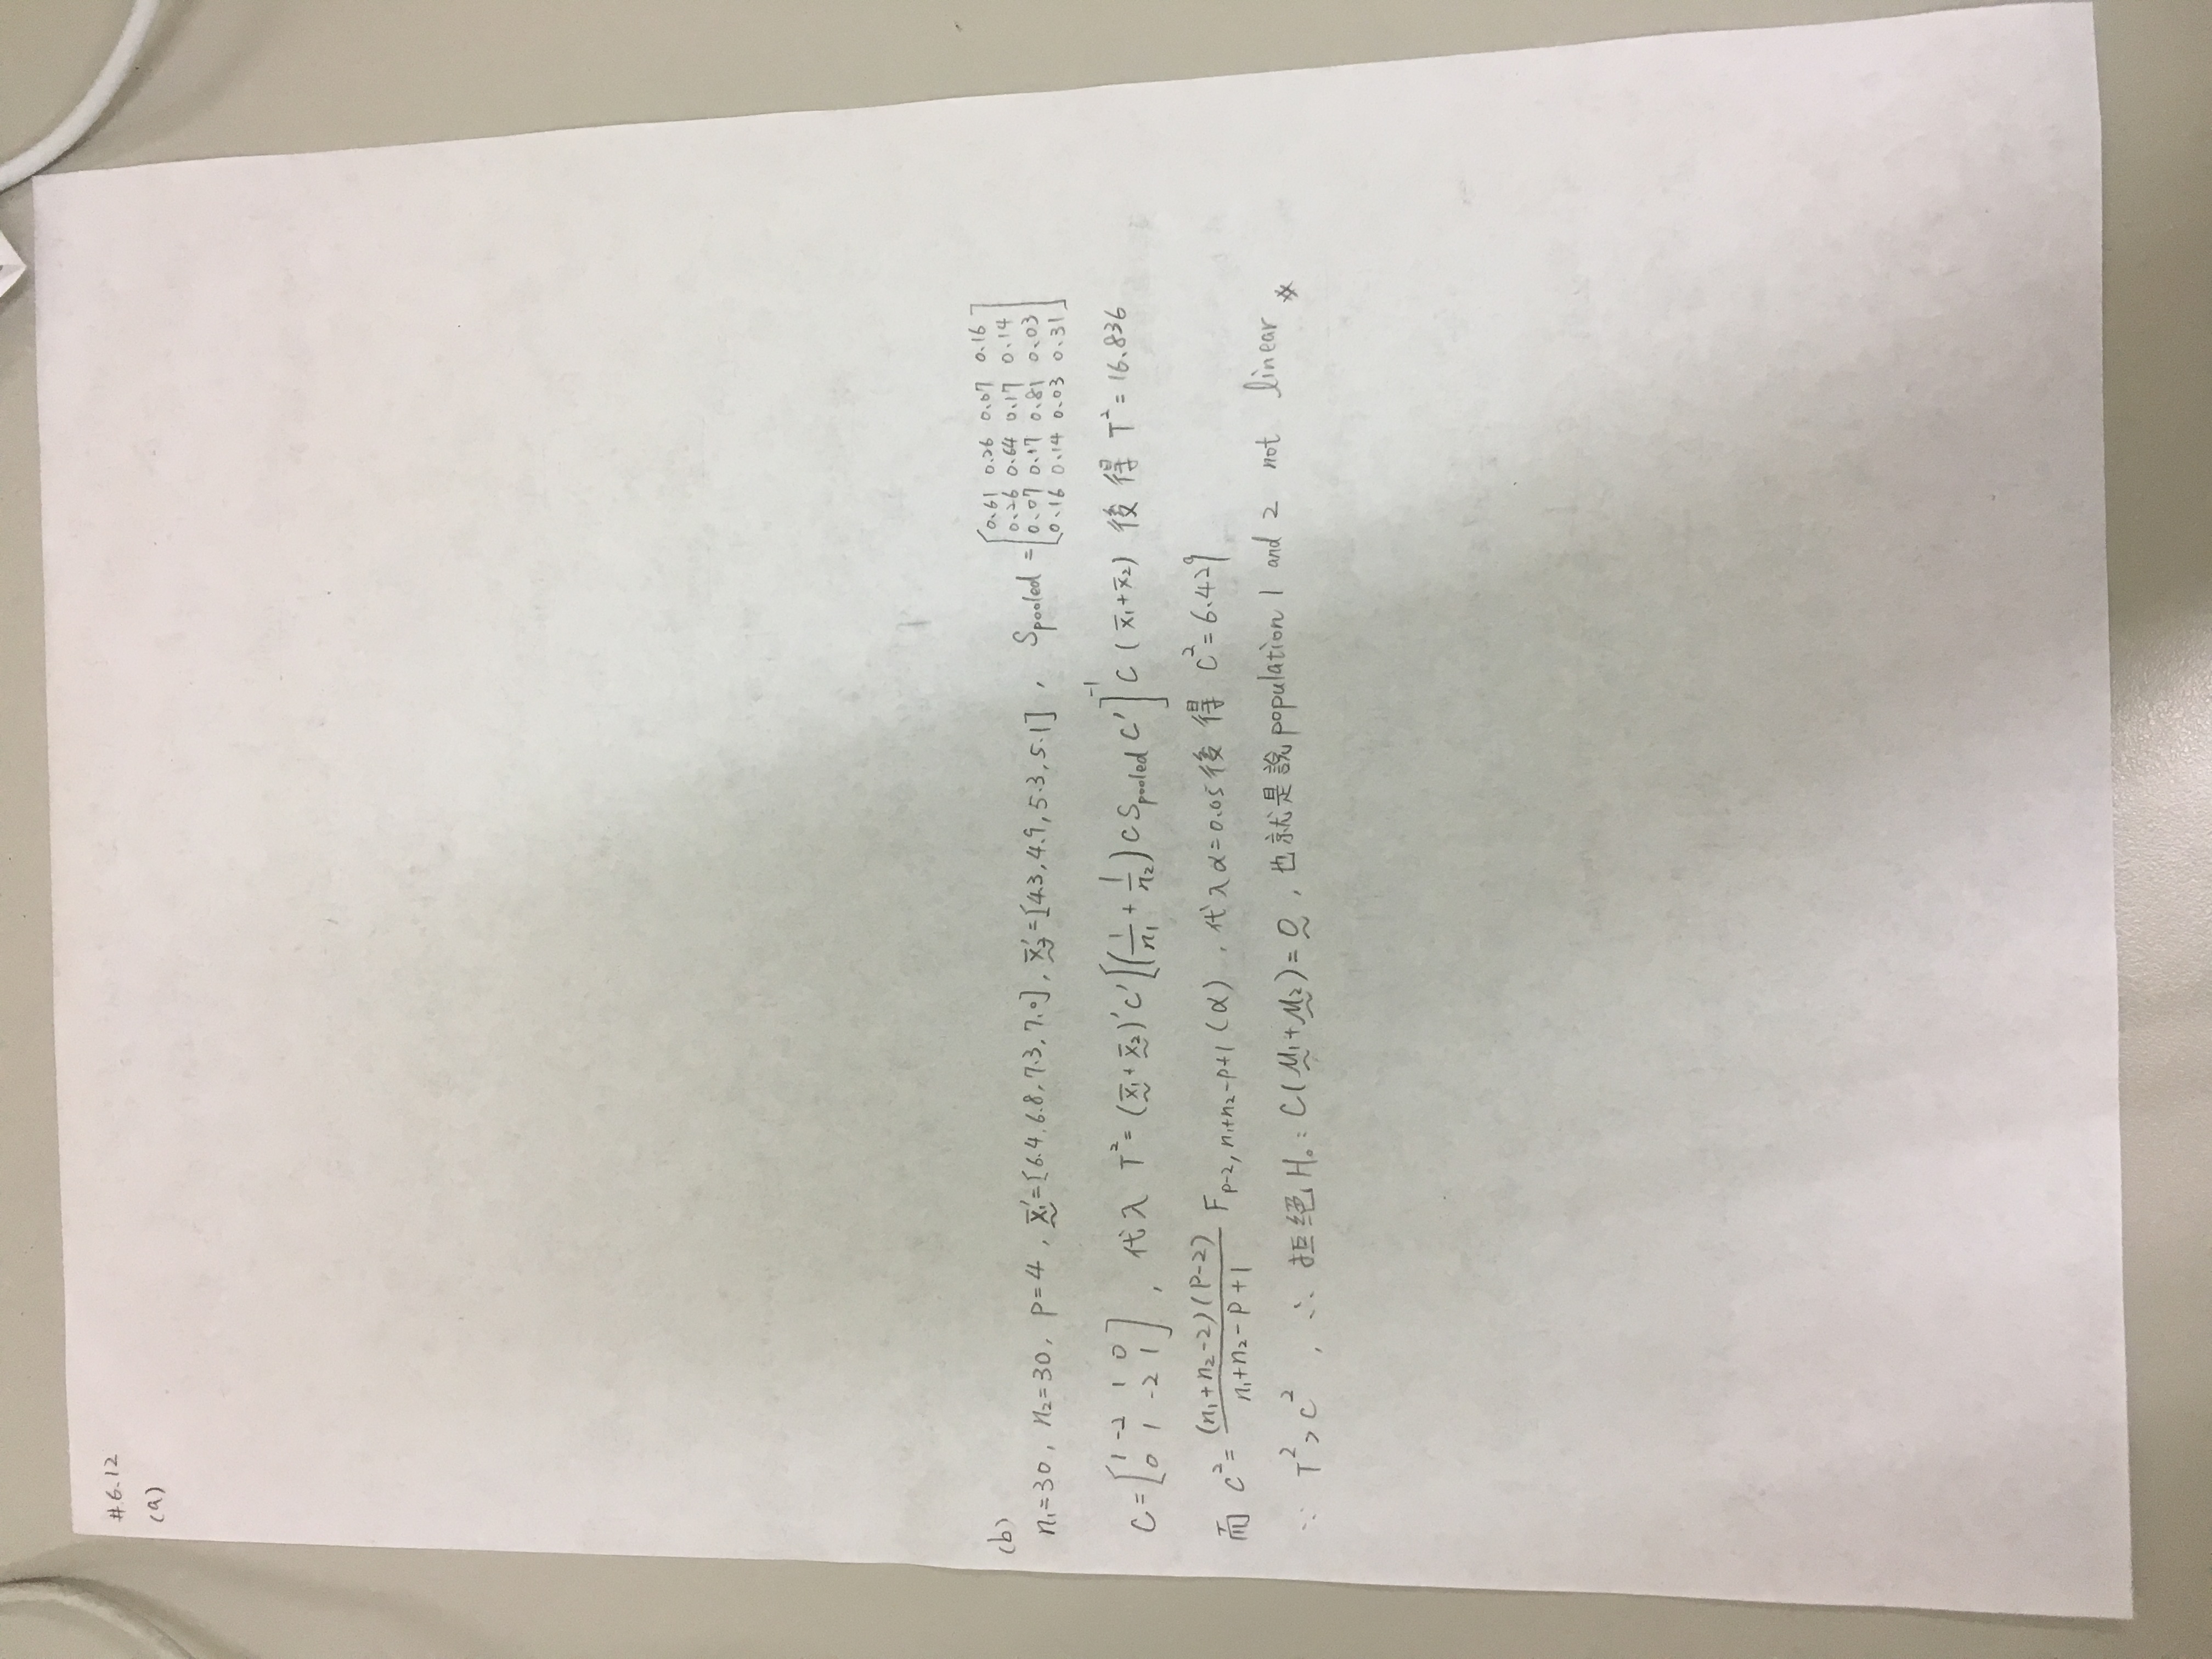 #6.12
(a)
(b)
n₁=30, n₂=30, p=4, x̄₁'=[6.4, 6.8, 7.3, 7.0], x̄₂'=[4.3, 4.9, 5.3, 5.1], Spooled = [0.61 0.26 0.07 0.16
0.26 0.64 0.17 0.14
0.07 0.17 0.81 0.03
0.16 0.14 0.03 0.31]
C=[1 -2 1 0
0 1 -2 1], 代入 T²=(x̄₁+x̄₂)'C'[(1/n₁+1/n₂)CSpooledC']⁻¹C(x̄₁+x̄₂) 後得 T²=16.836
而 C²=(n₁+n₂-2)(P-2)/(n₁+n₂-P+1) F p-2, n₁+n₂-p+1 (α), 代入α=0.05後得 C²=6.429
∵ T²>C², ∴ 拒絕H₀: C(μ₁+μ₂)=0, 也就是說population 1 and 2 not linear ※